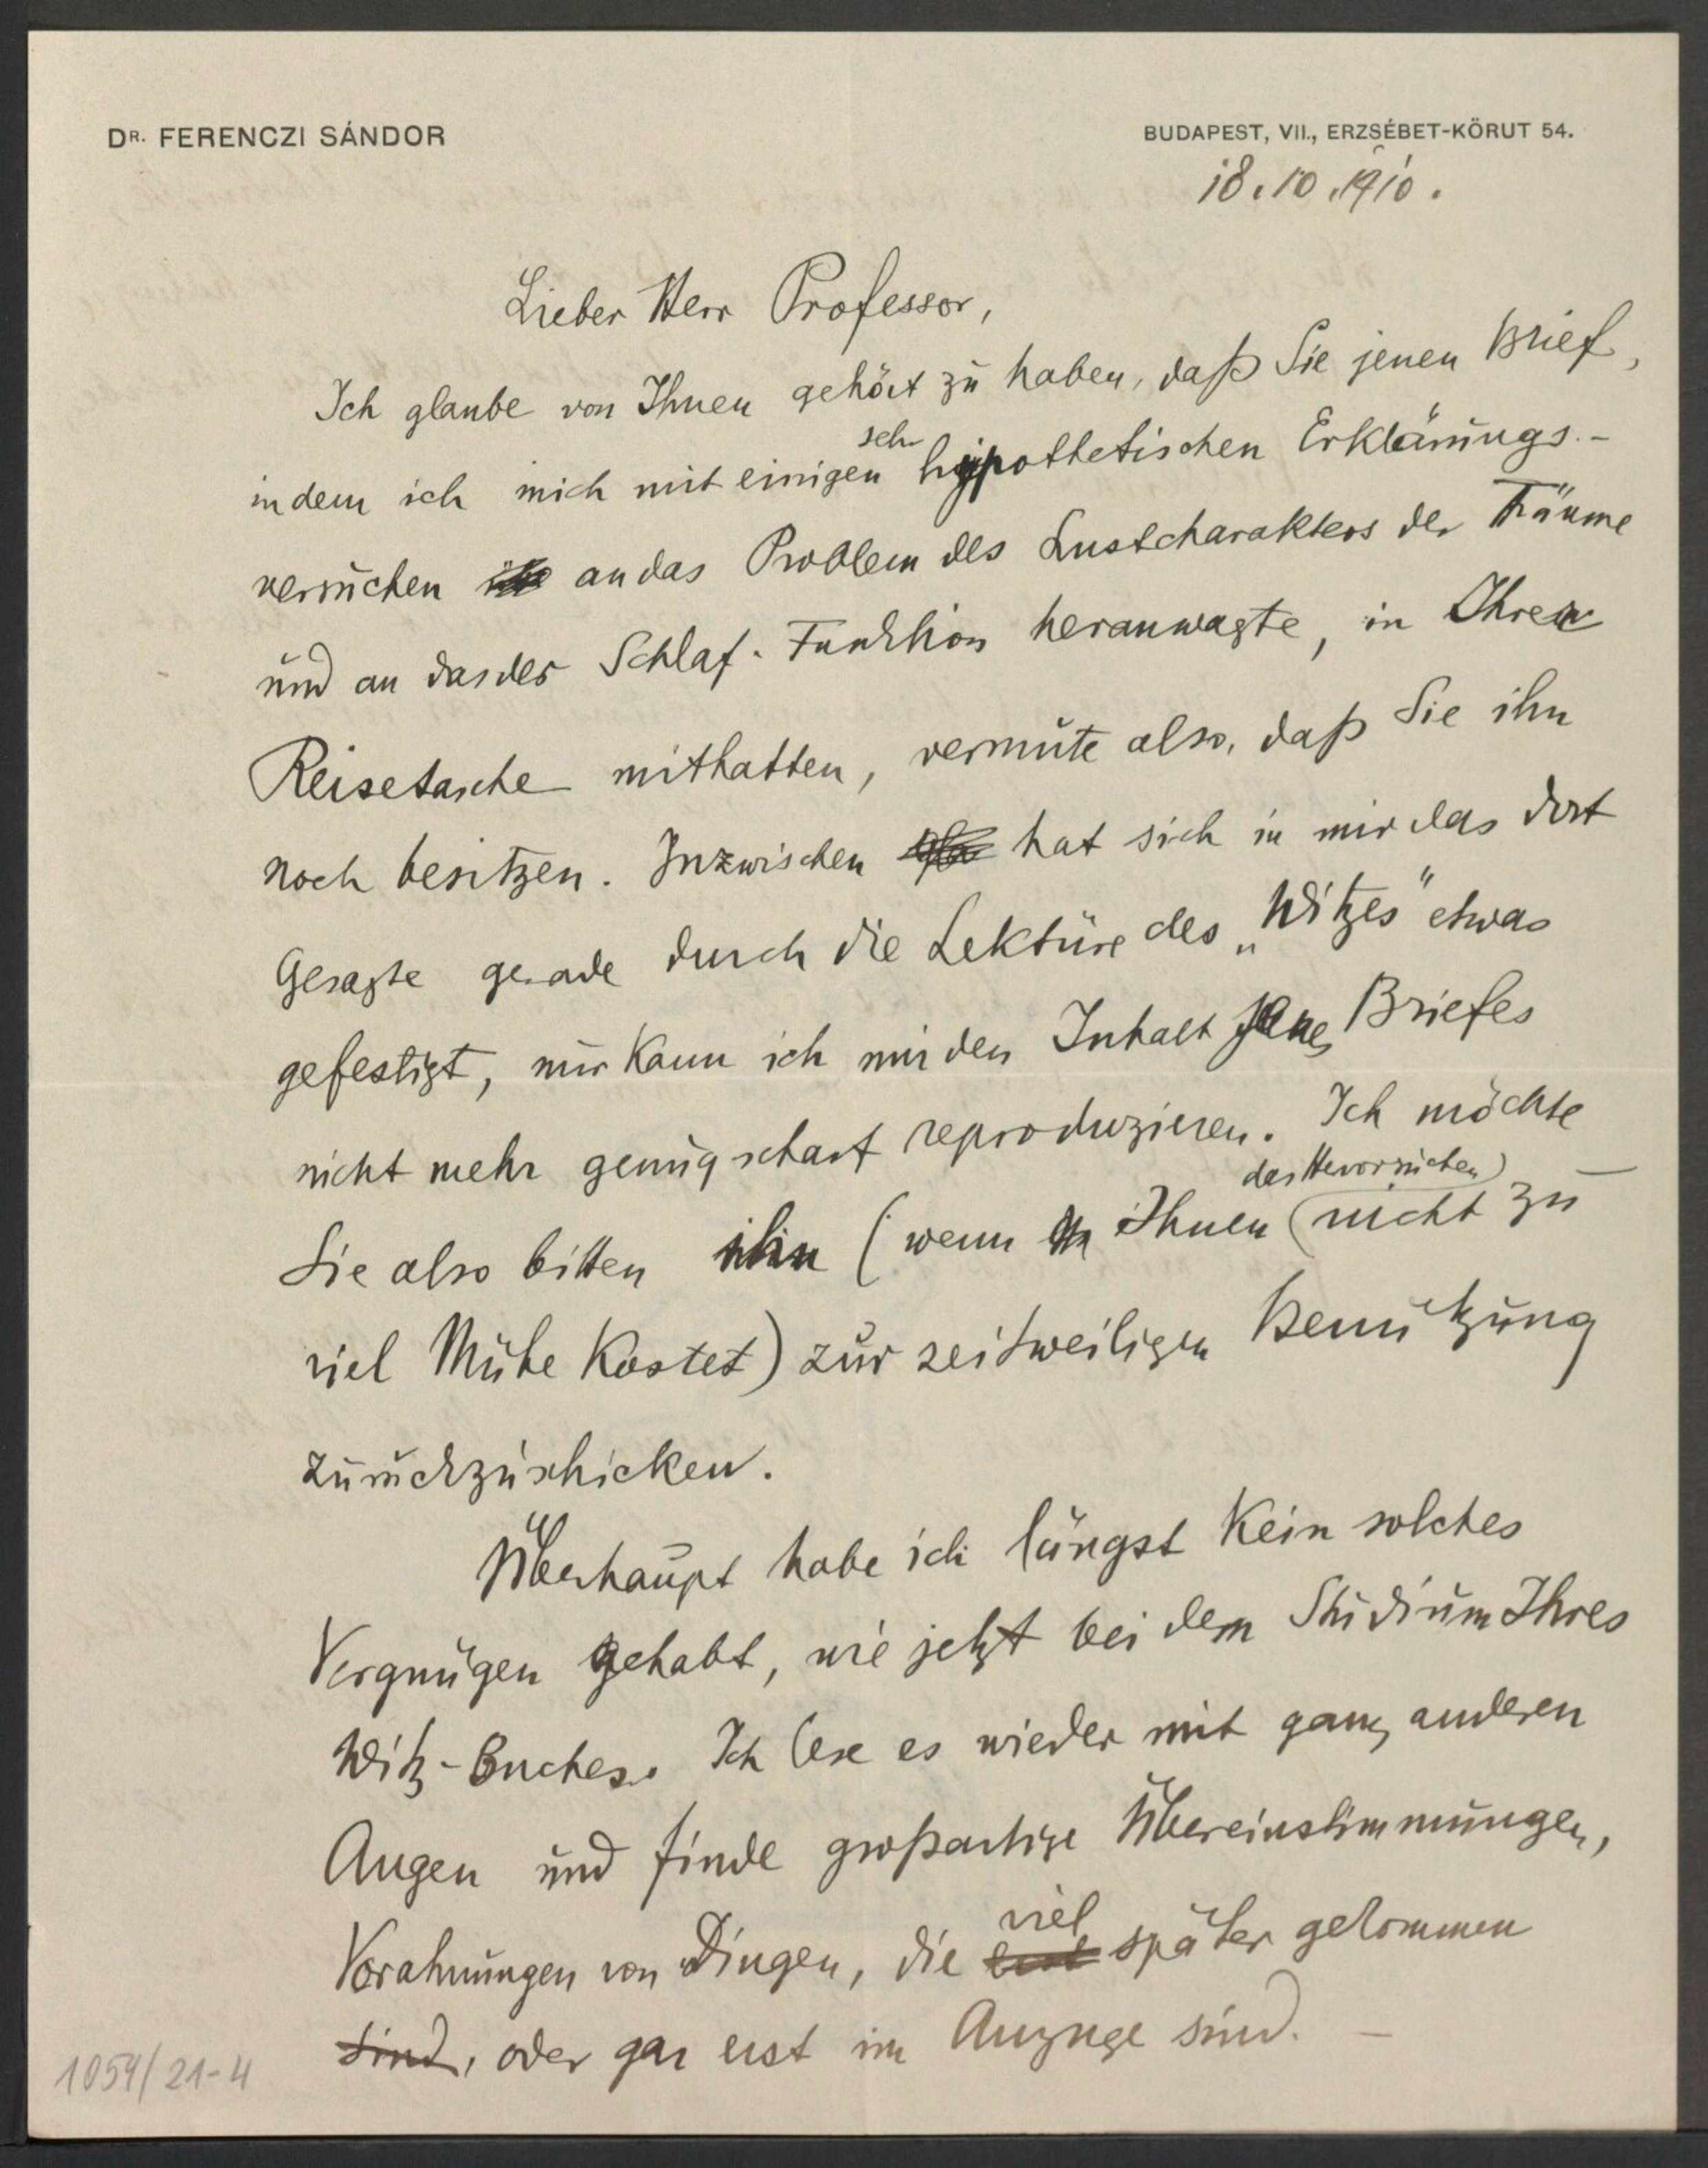 DR. FERENCZI SÁNDOR
BUDAPEST, VII., ERZSÉBET-KÖRUT 54.
18.10.1910.
Lieber Herr Professor,
Ich glaube von Ihnen gehört zu haben, daß Sie jenen Brief,
in dem ich mich mit einigen sehr hypothetischen Erklärungs-
versuchen an das Problem des Lustcharakters der Träume
und an das der Schlaf-Funktion heranwagte, in Ihrer
Reisetasche mithatten, vermute also, daß Sie ihn
noch besitzen. Inzwischen hat sich in mir das dort
Gesagte gerade durch die Lektüre des „Witzes" etwas
gefestigt, nur kann ich mir den Inhalt jenes Briefes
nicht mehr genug scharf reproduzieren. Ich möchte
Sie also bitten ihn (wenn Ihnen das Hervorsuchen nicht zu
viel Mühe kostet) zur zeitweiligen Benützung
zurückzuschicken.
Überhaupt habe ich längst kein solches
Vergnügen gehabt, wie jetzt bei dem Studium Ihres
Witz-Buches. Ich lese es wieder mit ganz anderen
Augen und finde großartige Übereinstimmungen,
Vorahnungen von Dingen, die viel später gekommen
sind, oder gar erst im Anzuge sind. –
1054/21-4